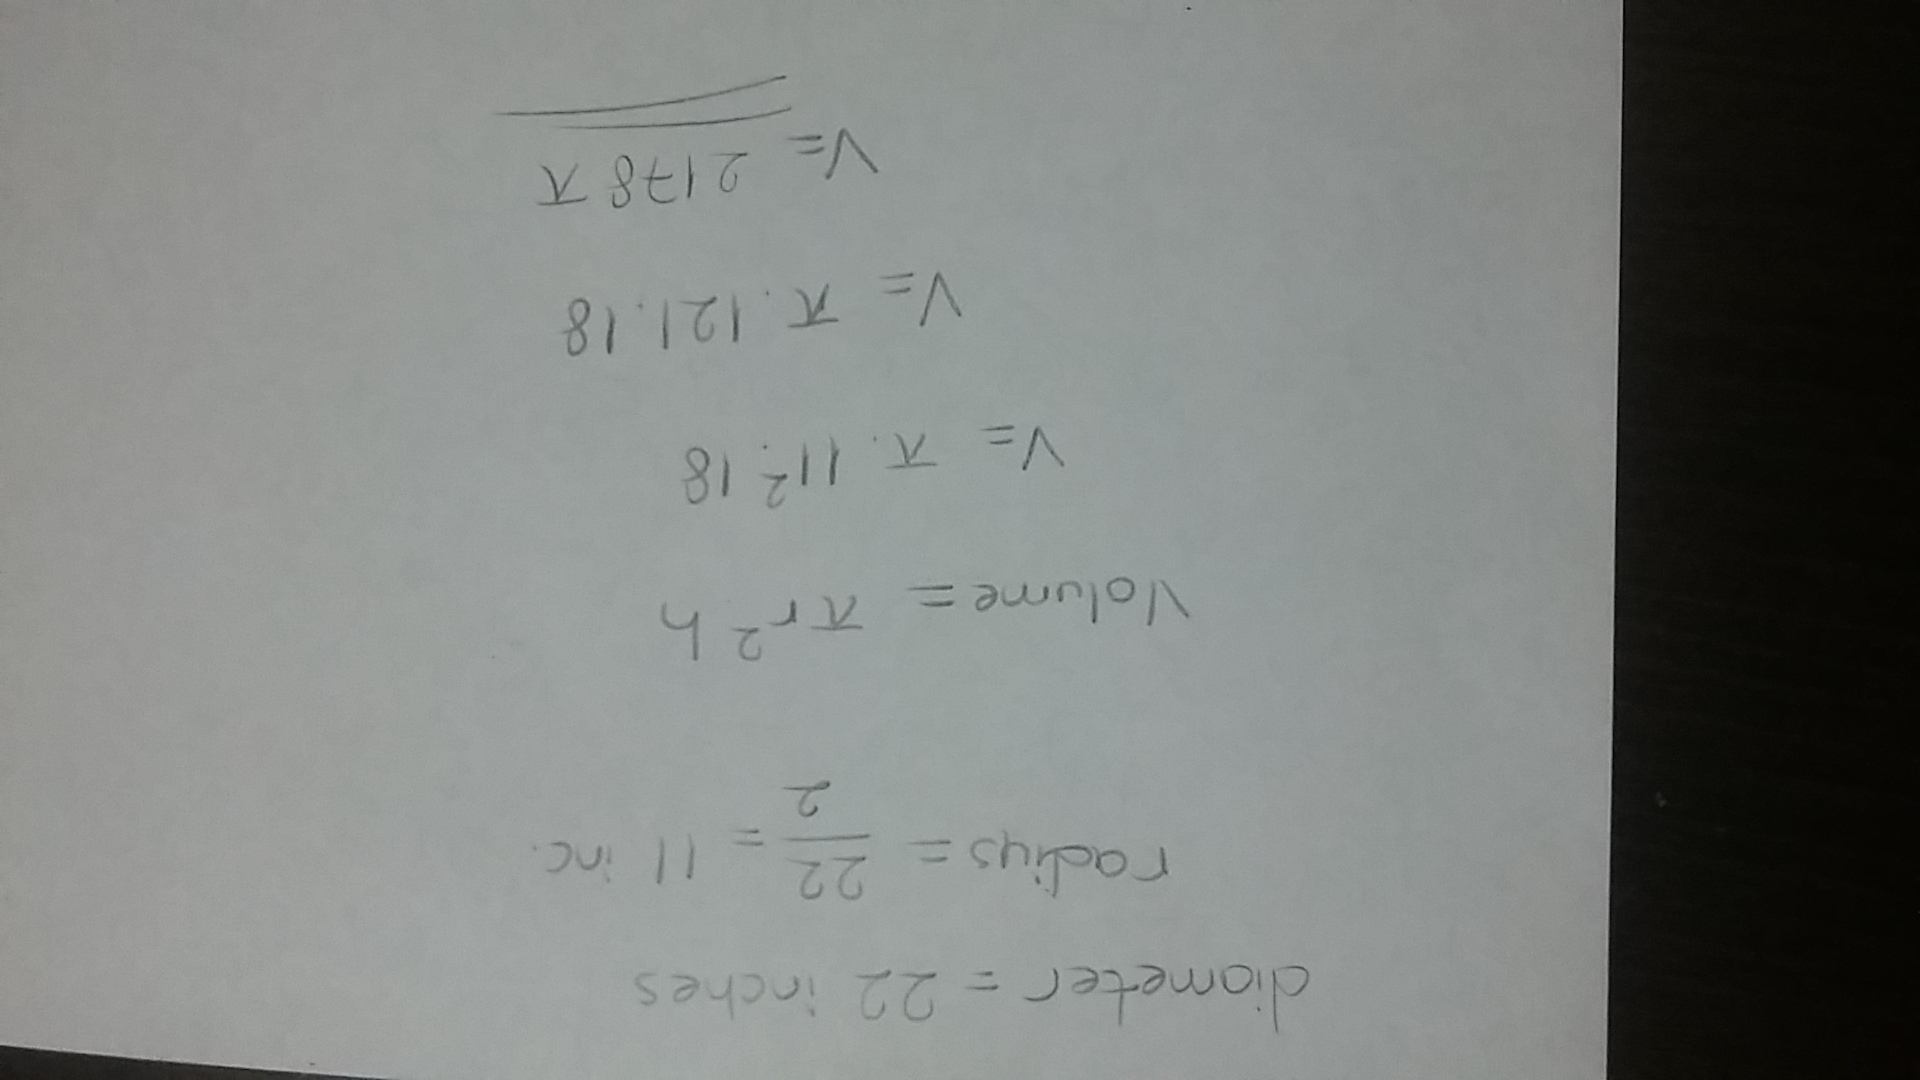 diameter = 22 inches
radius = 22/2 = 11 inc.
Volume = πr²h
V= π·11²·18
V= π·121·18
V= 2178π